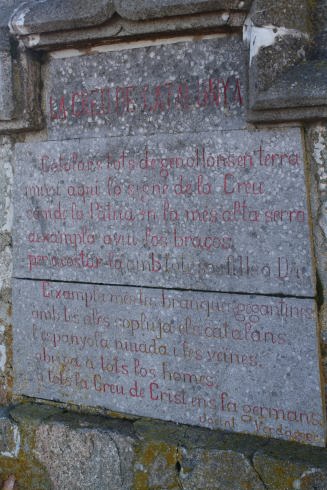 LA CREU DE CATALUNYA
Catalans tots de genollons en terra
mirau aquí lo signe de la Creu
com de la Pàtria en la més alta serra
aixampla avui los braços
per acostar-la amb tots sos fills a Déu
Eixampla més tes branques gegantines
amb tes ales sopluja als catalans
l'espanyola niuada i les veines
abriga a tots los homes
a tots la Creu de Crist ens fa germans
Jacint Verdaguer